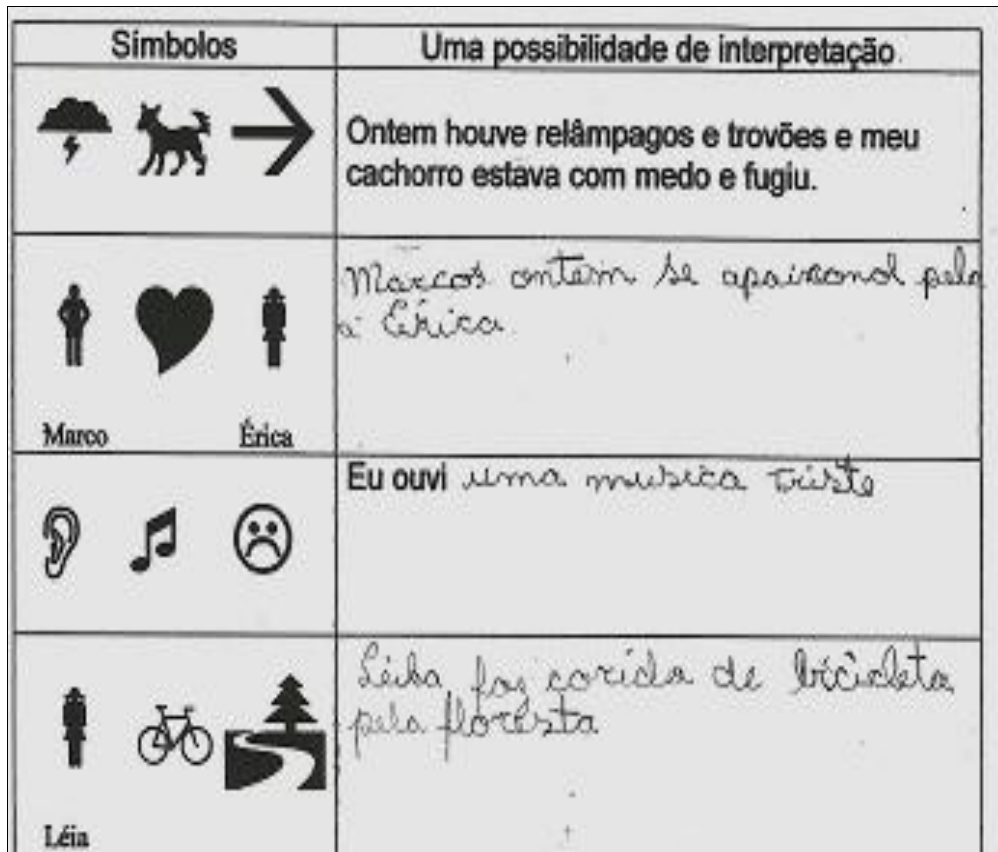 Símbolos
Uma possibilidade de interpretação.
Ontem houve relâmpagos e trovões e meu
cachorro estava com medo e fugiu.
Marco
Érica
Marcos ontem se apaixonol pela
a Érica.
Eu ouvi uma musica triste
Léia
faz corrida de bicicleta
pela floresta